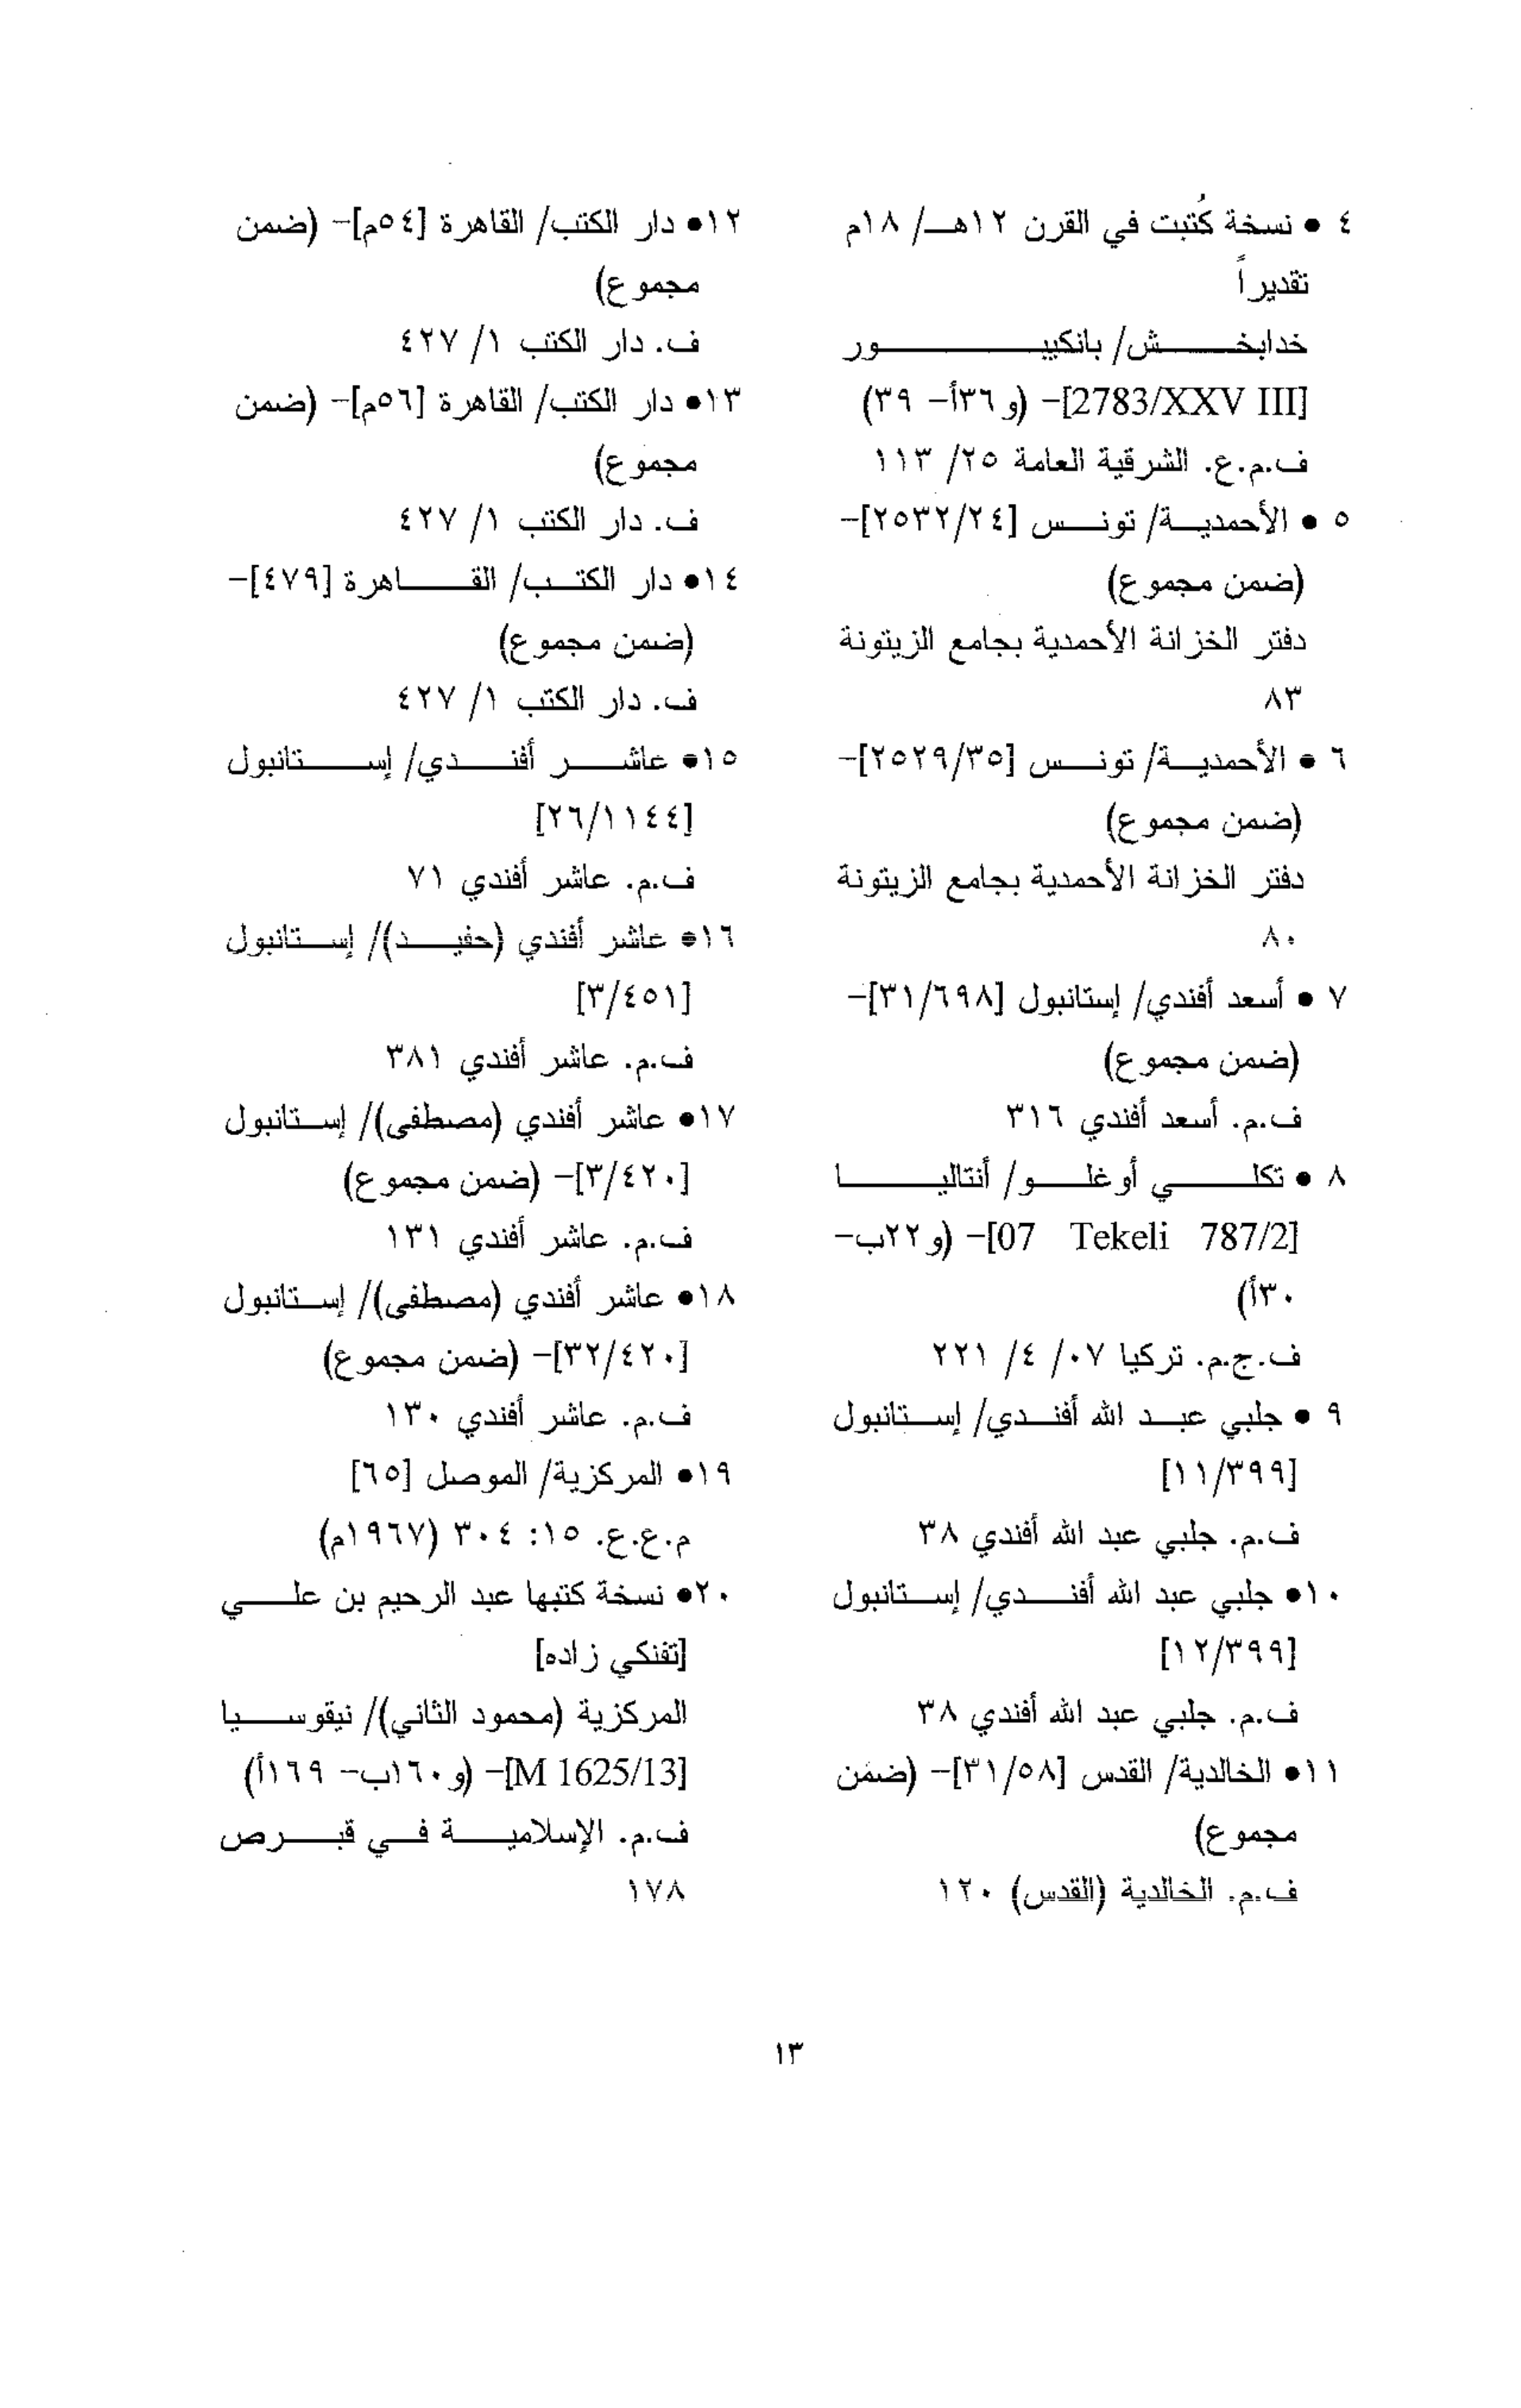 ٤ • نسخة كُتبت في القرن ١٢هـ/ ١٨م
تقديراً
خدابخش/ بانكيپور
[2783/XXV III]- (و٣٦أ- ٣٩)
ف.م.ع. الشرقية العامة ٢٥/ ١١٣
٥ • الأحمدية/ تونس [٢٥٣٢/٢٤]-
(ضمن مجموع)
دفتر الخزانة الأحمدية بجامع الزيتونة
٨٣
٦ • الأحمدية/ تونس [٢٥٢٩/٣٥]-
(ضمن مجموع)
دفتر الخزانة الأحمدية بجامع الزيتونة
٨٠
٧ • أسعد أفندي/ إستانبول [٣١/٦٩٨]-
(ضمن مجموع)
ف.م. أسعد أفندي ٣١٦
٨ • تكلي أوغلو/ أنتاليا
[07 Tekeli 787/2]- (و٢٢ب-
٣٠أ)
ف.ج.م. تركيا ٠٧/ ٤/ ٢٢١
٩ • جلبي عبد الله أفندي/ إستانبول
[١١/٣٩٩]
ف.م. جلبي عبد الله أفندي ٣٨
١٠• جلبي عبد الله أفندي/ إستانبول
[١٢/٣٩٩]
ف.م. جلبي عبد الله أفندي ٣٨
١١• الخالدية/ القدس [٣١/٥٨]- (ضمن
مجموع)
ف.م. الخالدية (القدس) ١٢٠
١٢• دار الكتب/ القاهرة [٥٤م]- (ضمن
مجموع)
ف. دار الكتب ١/ ٤٢٧
١٣• دار الكتب/ القاهرة [٥٦م]- (ضمن
مجموع)
ف. دار الكتب ١/ ٤٢٧
١٤• دار الكتب/ القاهرة [٤٧٩]-
(ضمن مجموع)
ف. دار الكتب ١/ ٤٢٧
١٥• عاشر أفندي/ إستانبول
[٢٦/١١٤٤]
ف.م. عاشر أفندي ٧١
١٦• عاشر أفندي (حفيد)/ إستانبول
[٣/٤٥١]
ف.م. عاشر أفندي ٣٨١
١٧• عاشر أفندي (مصطفى)/ إستانبول
[٣/٤٢٠]- (ضمن مجموع)
ف.م. عاشر أفندي ١٣١
١٨• عاشر أفندي (مصطفى)/ إستانبول
[٣٢/٤٢٠]- (ضمن مجموع)
ف.م. عاشر أفندي ١٣٠
١٩• المركزية/ الموصل [٦٥]
م.ع.ع. ١٥: ٣٠٤ (١٩٦٧م)
٢٠• نسخة كتبها عبد الرحيم بن علي
[تفنكي زاده]
المركزية (محمود الثاني)/ نيقوسيا
[M 1625/13]- (و١٦٠ب- ١٦٩أ)
ف.م. الإسلامية في قبرص
١٧٨
١٣